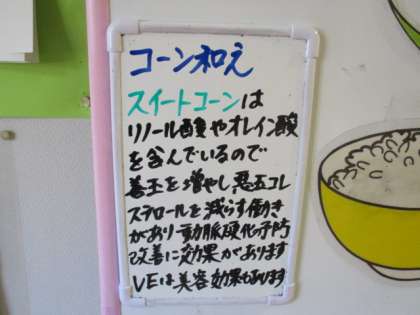 コーン和え
スイートコーンは
リノール酸やオレイン酸
を含んでいるので
善玉を増やし悪玉コレ
ステロールを減らす働き
があり動脈硬化予防
改善に効果があります
VEは美容効果もあります